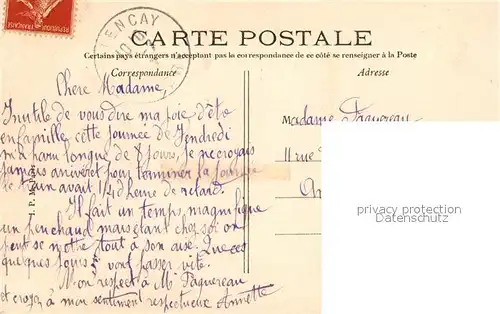 ENCAY
CARTE POSTALE
Certains pays étrangers n'acceptant pas la correspondance de ce côté se renseigner à la Poste
Correspondance
Adresse
Chere Madame,
Inutile de vous dire ma joie d'être
en famille cette journée de Vendredi
m'a paru longue de 8 jours, je ne croyais
jamais arriver et pour terminer la journée
le train avait 1/4 d'heure de retard.
Il fait un temps magnifique
un peu chaud mais etant chez soi on
peut se mettre tout à son aise. Que ces
quelques jours vont passer vite.
Mon respect à Mr Paquereau
et croyez à mon sentiment respectueux Annette
Madame Paquereau
11 rue
privacy protection
Datenschutz